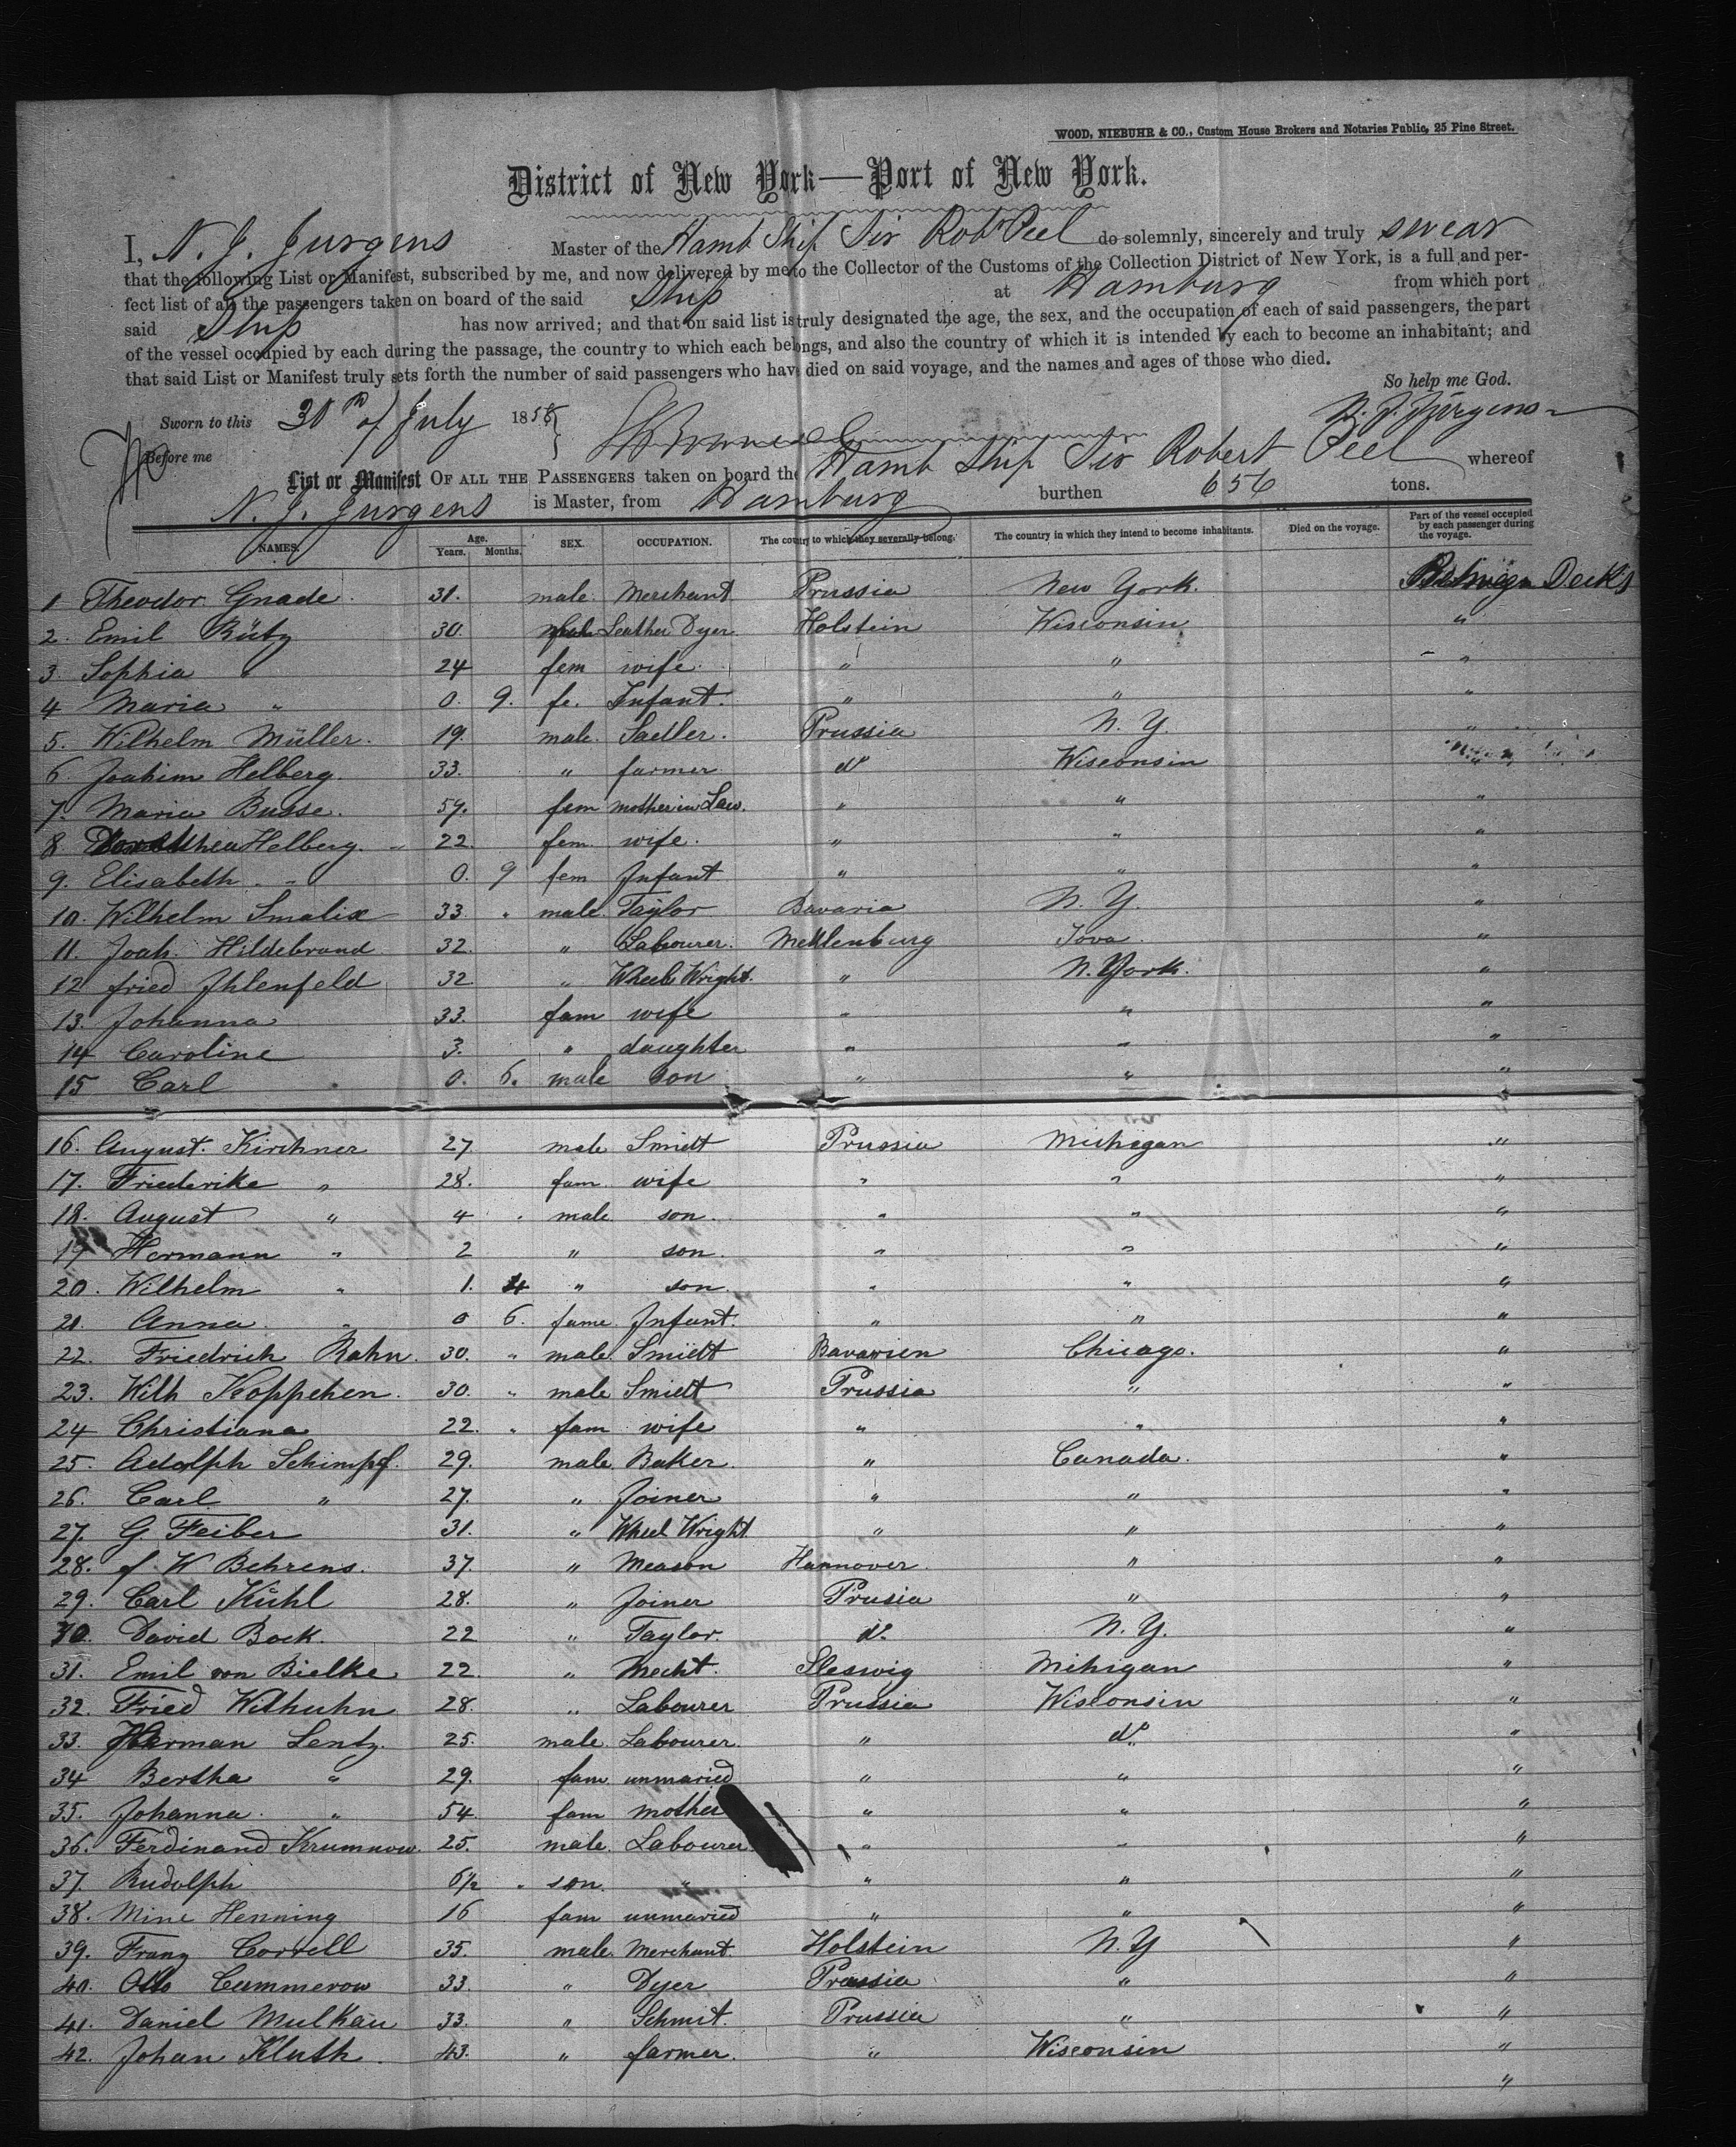 WOOD, NIEBUHR & CO., Custom House Brokers and Notaries Public, 25 Pine Street.
District of New York—Port of New York.
I, N. J. Jurgens Master of the Hamb Ship Sir Robt Peel do solemnly, sincerely and truly swear
that the following List or Manifest, subscribed by me, and now delivered by me to the Collector of the Customs of the Collection District of New York, is a full and per-
fect list of all the passengers taken on board of the said Ship at Hamburg from which port
said Ship has now arrived; and that on said list is truly designated the age, the sex, and the occupation of each of said passengers, the part
of the vessel occupied by each during the passage, the country to which each belongs, and also the country of which it is intended by each to become an inhabitant; and
that said List or Manifest truly sets forth the number of said passengers who have died on said voyage, and the names and ages of those who died.
So help me God.
Sworn to this 30th of July 185 N. J. Jürgens
Before me
List or Manifest OF ALL THE PASSENGERS taken on board the Hamb Ship Sir Robert Peel whereof
N. J. Jurgens is Master, from Hamburg burthen 656 tons.
NAMES. Age. Years. Months. SEX. OCCUPATION. The country to which they severally belong. The country in which they intend to become inhabitants. Died on the voyage. Part of the vessel occupied by each passenger during the voyage.
1 Theodor Gnade. 31. male. Merchant Prussia New York. Between Decks
2. Emil Rütz 30. Leather Dyer. Holstein Wisconsin "
3. Sophia " 24 fem wife. " " "
4 Maria " 0. 9. fe. Infant. " " "
5. Wilhelm Müller. 19. male. Saedler. Prussia N. Y. "
6. Joahim Helberg. 33. " farmer do Wisconsin "
7. Maria Busse. 59. fem mother in Law. " " "
8 Dorothea Helberg. 22. fem. wife. " " "
9. Elisabeth " 0. 9 fem Infant " " "
10. Wilhelm Smalix 33. male. Taylor Bavaria N. Y. "
11. Joah. Hildebrand 32. " Labourer. Meklenburg Iova. "
12 fried Ihlenfeld 32 " Wheel Wright. " N. York. "
13. Johanna 33. fam wife " " "
14 Caroline 3. " daughter " " "
15 Carl 0. 6. male son " " "
16. August. Kirchner 27. male Smidt Prussia Mishigan "
17. Friederike " 28. fam. wife " " "
18. August " 4 male son. " " "
19 Hermann " 2 " son. " " "
20. Wilhelm " 1. 4 " son. " " "
21. Anna. " 0 6. fame. Infant. " " "
22. Friedrich Rahn. 30. male Smidt Bavarien Chicago. "
23. Wilh Koppehen. 30. male Smidt Prussia " "
24 Christiana 22. fam wife " " "
25. Adolph Schimpf. 29. male. Baker. " Canada. "
26. Carl " 27. " Joiner " " "
27. G. Feiber 31. " Wheel Wright " " "
28. f. W Behrens. 37. " Meason Hannover. " "
29. Carl Kühl 28. " Joiner Prusia " "
30. David Bock. 22 " Taylor. do N. Y. "
31. Emil von Bielke 22. " Mecht. Sleswig Mihigan "
32. Fried Wilhuhn 28. " Labourer Prussia Wisconsin "
33. Herman Lentz. 25. male. Labourer. " do "
34 Bertha " 29. fam unmaried " " "
35. Johanna. " 54. fam mother " " "
36. Ferdinand Krumnow. 25. male. Labourer. " " "
37. Rudolph 6/12 son. " " " "
38. Mine Henning 16 fam unmaried " " "
39. Franz Correll 35. male. Merchant. Holstein N. Y "
40. Otto Cummerow 33. " Dyer Prussia " "
41. Daniel Mulkau 33. " Schmit. Prussia " "
42. Johan Kluth. 43. " farmer. " Wisconsin "
"